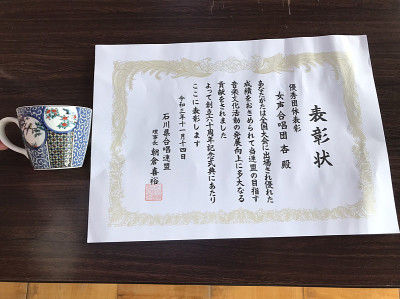 表彰状
優秀団体表彰
女声合唱団 杏 殿
あなたがたは全国大会に出場され優れた
成績をおさめられて当連盟の目指す
音楽文化活動の発展向上に多大なる
貢献をされました
よって創立六十周年記念式典にあたり
ここに表彰します
令和三年十一月十四日
石川県合唱連盟
理事長 朝倉喜裕